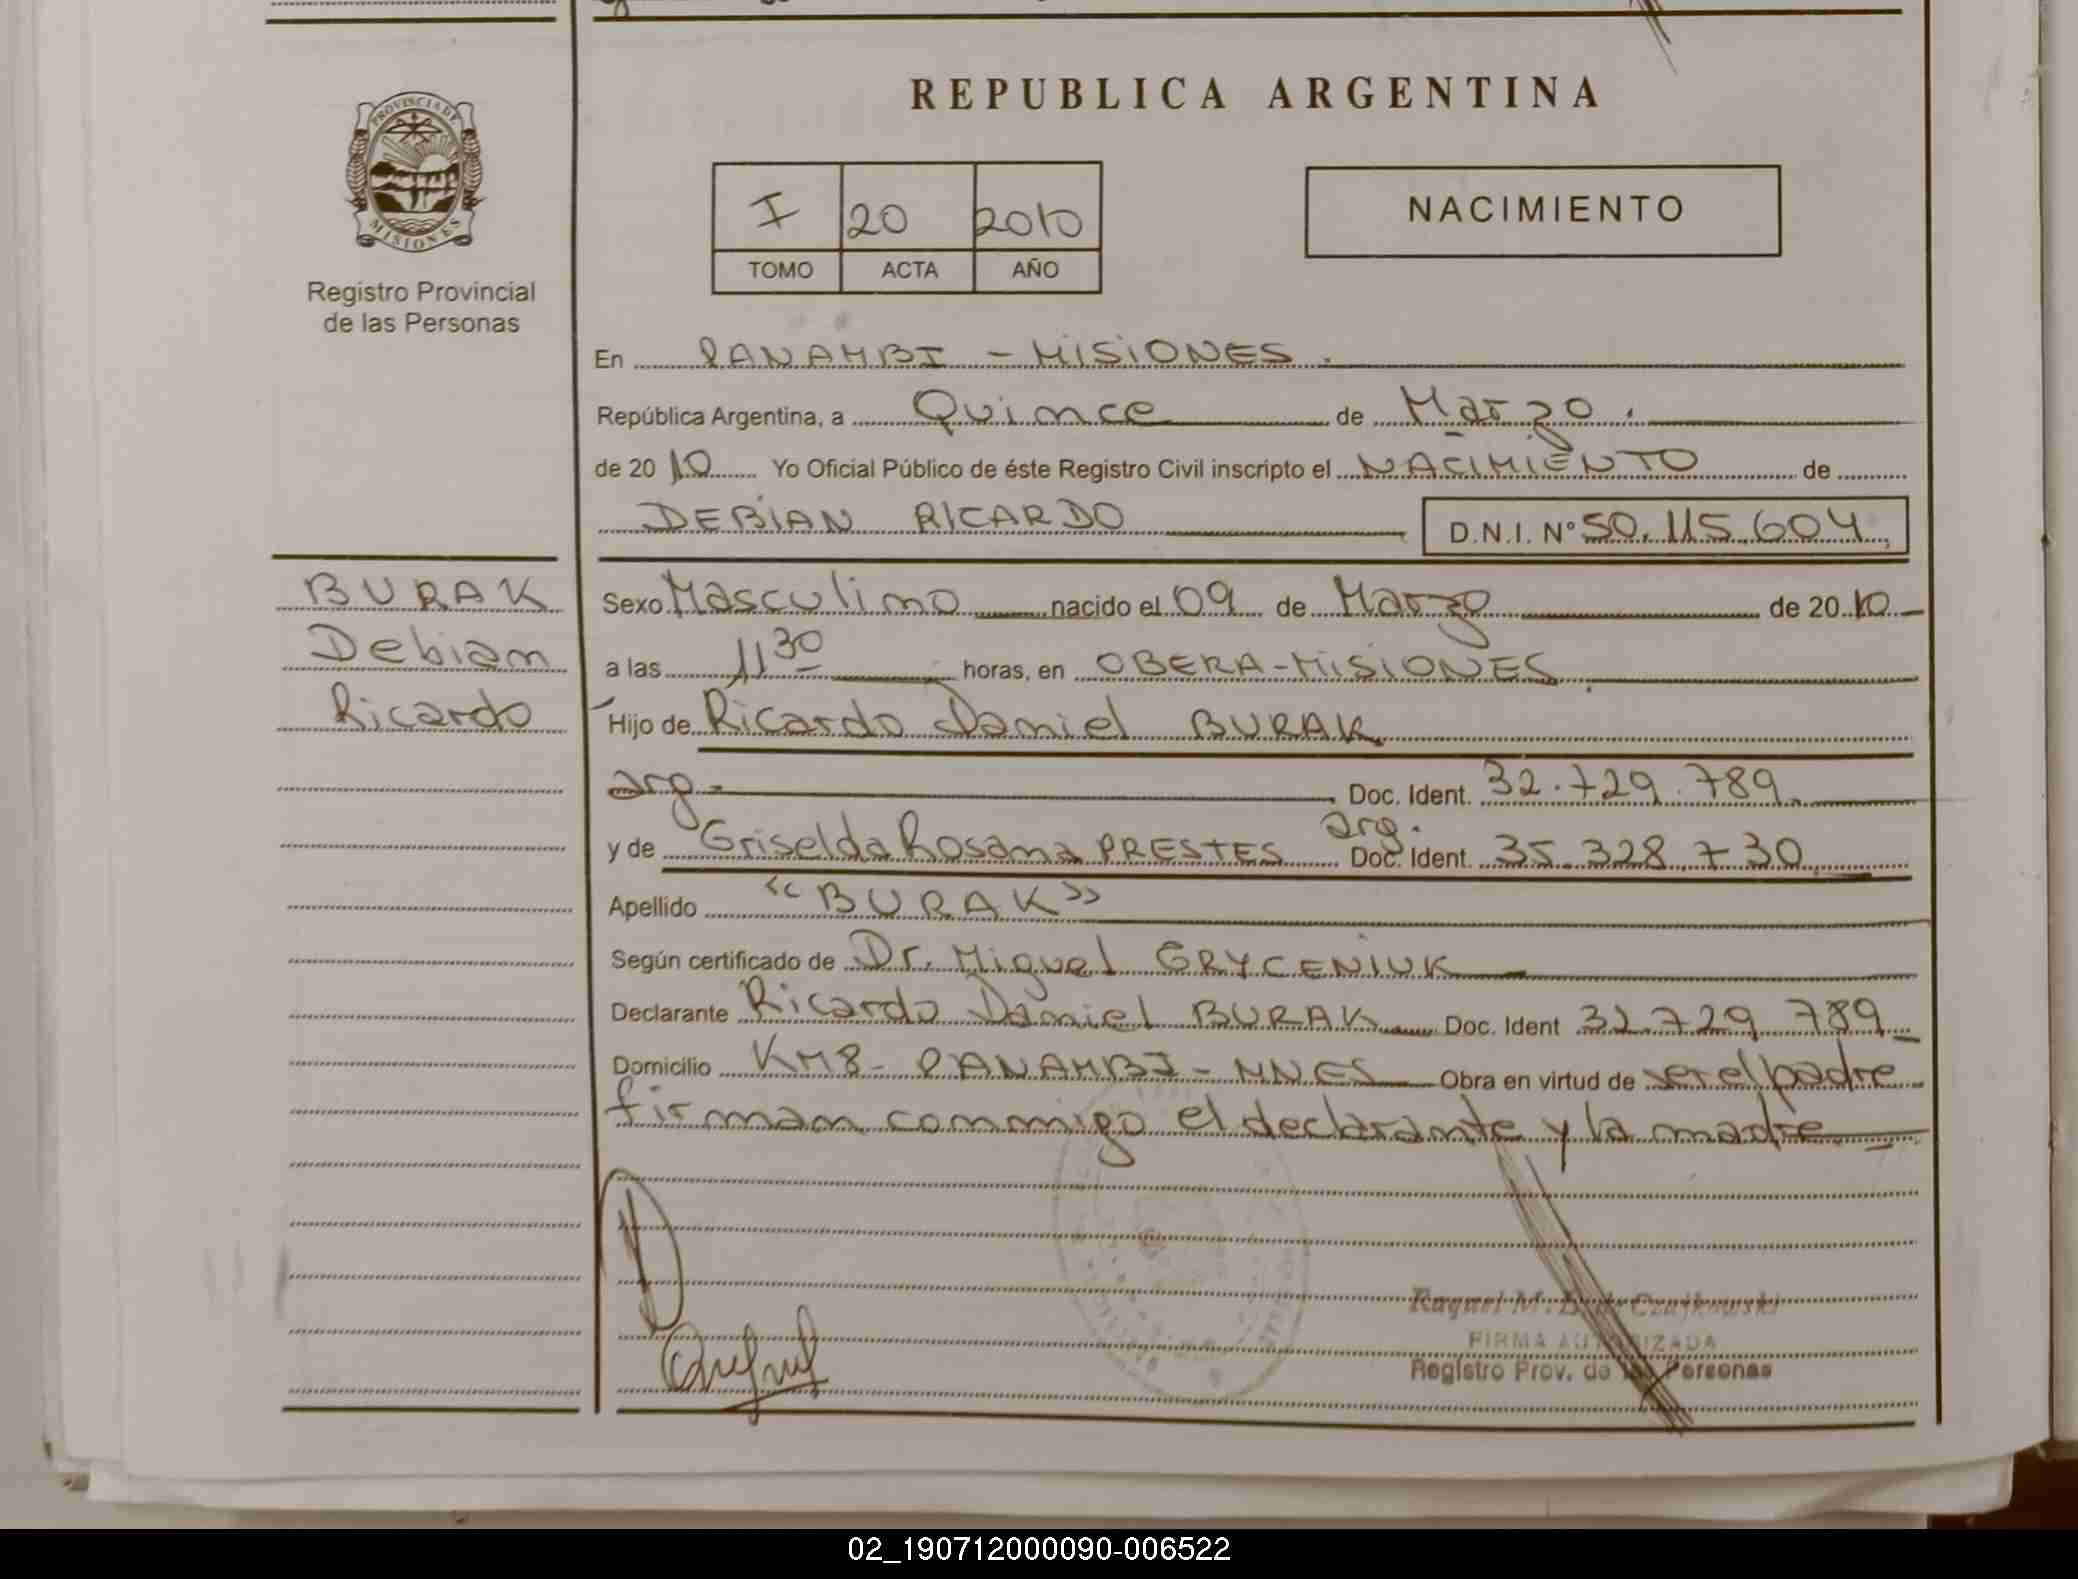 PROVINCIA DE
MISIONES
Registro Provincial
de las Personas
REPUBLICA ARGENTINA
I 20 2010
TOMO ACTA AÑO
NACIMIENTO
En PANAMBI - MISIONES.
República Argentina, a Quince de Marzo.
de 20 10 Yo Oficial Público de éste Registro Civil inscripto el NACIMIENTO de
DEBIAN RICARDO D.N.I. Nº 50.115.604
BURAK
Debian
Ricardo
Sexo Masculino nacido el 09 de Marzo de 20 10
a las 11 30 horas, en OBERA-MISIONES.
Hijo de Ricardo Daniel BURAK
arg. Doc. Ident. 32.729.789.
y de Griselda Rosana PRESTES arg. Doc. Ident. 35.328.730
Apellido "BURAK"
Según certificado de Dr. Miguel GRYCENIUK
Declarante Ricardo Daniel BURAK Doc. Ident 32.729.789
Domicilio KM8- PANAMBI - MNES Obra en virtud de ser el padre
firman conmigo el declarante y la madre
Raquel M. B. de Czajkowski
FIRMA AUTORIZADA
Registro Prov. de las Personas
02_190712000090-006522